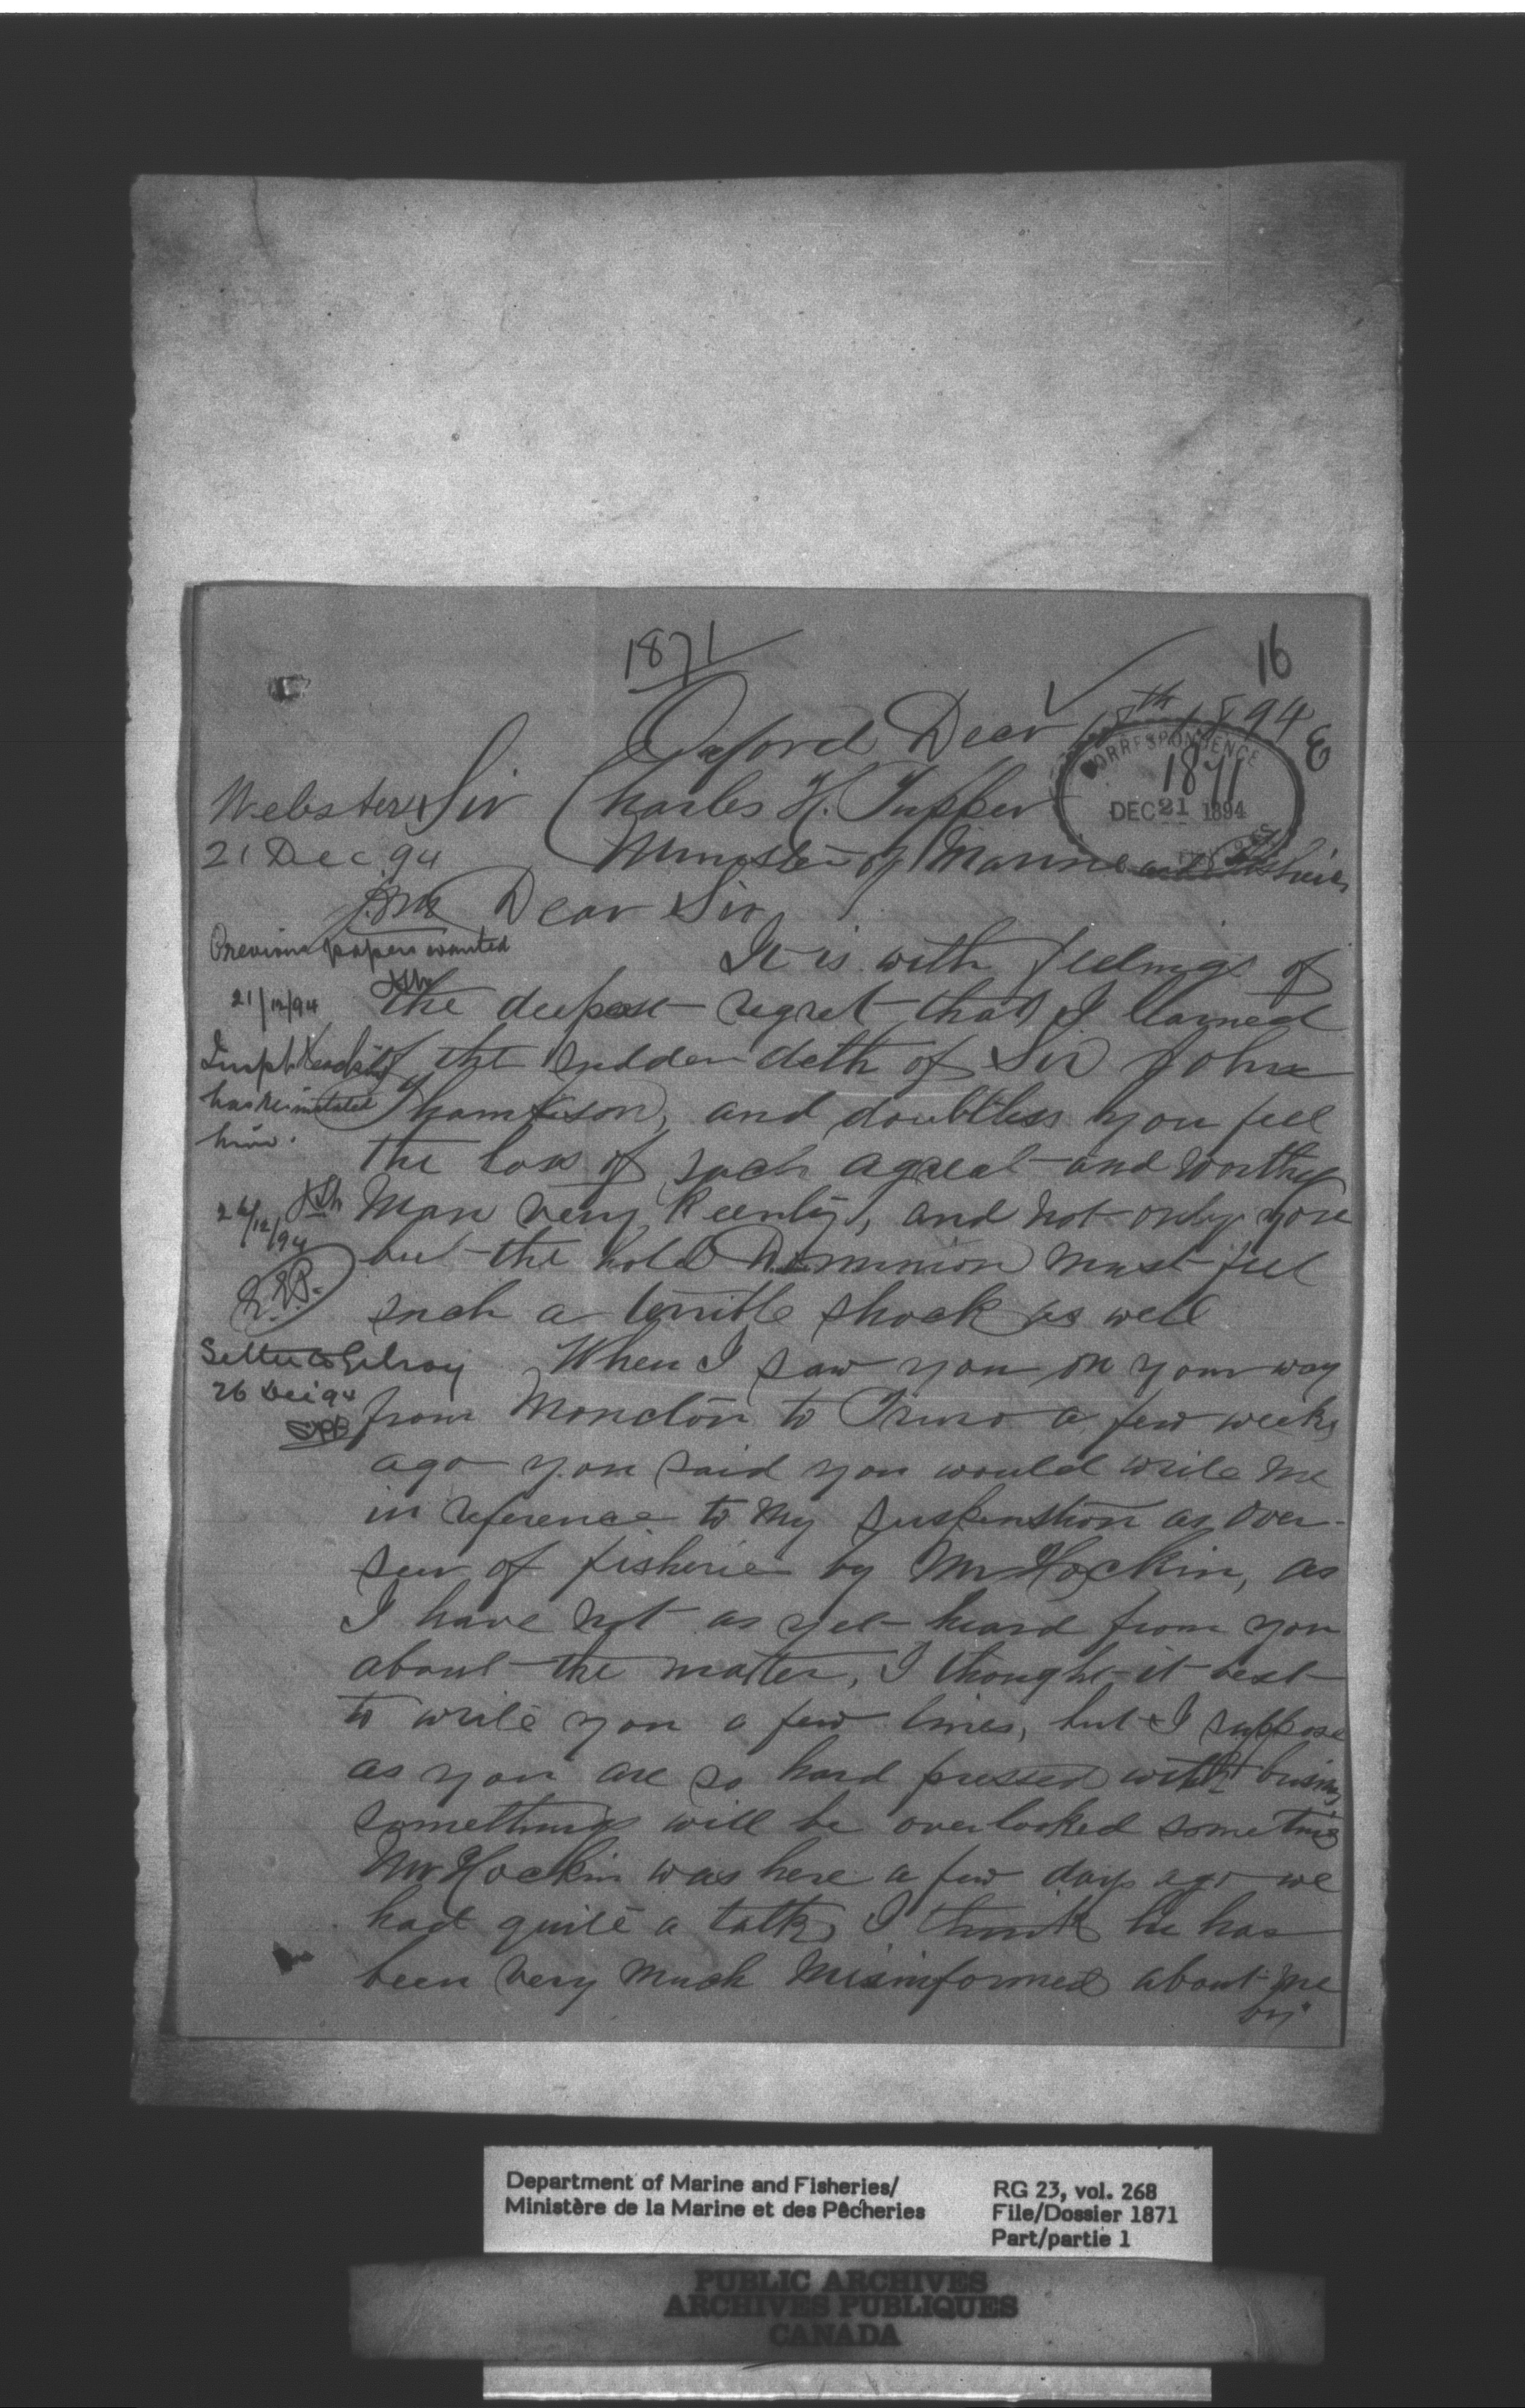 1871
16
Oxford Decr 18th 1894
E
CORRESPONDENCE
1871
DEC 21 1894
Webster
21 Dec 94
Sir Charles H. Tupper
Minister of Marine and Fisheries
Dear Sir
Previous papers wanted
21/12/94
It is with feelings of
the deepest regret that I learned
of the sudden deth of Sir John
Thompson, and doubtless you feel
the loss of such a great and worthy
Man very keenly, and not only you
but the hold Dominion must feel
such a terrible shock as well
Inspt. Hockin
has reinstated
him.
24/12/94
R.L.P.
Letter to Gilroy
26 Dec 94
When I saw you on your way
from Moncton to Truro a few weeks
ago you said you would write me
in reference to my suspenstion as over-
seer of fisherie by Mr Hockin, as
I have not as yet heard from you
about the matter, I thought it best
to write you a few lines, but I suppose
as you are so hard pressed with busines
somethings will be overlooked sometime
Mr Hockin was here a few days ago we
had quite a talk, I think he has
been very much misinformed about me
by
Department of Marine and Fisheries/
Ministère de la Marine et des Pêcheries
RG 23, vol. 268
File/Dossier 1871
Part/partie 1
PUBLIC ARCHIVES
ARCHIVES PUBLIQUES
CANADA